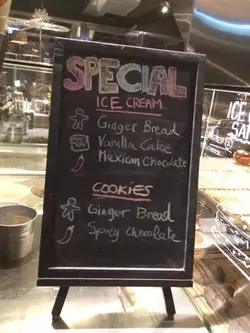 SPECIAL
ICE CREAM
Ginger Bread
Vanilla Cake
Mexican Chocolate
COOKIES
Ginger Bread
Spicy Chocolate
ICE